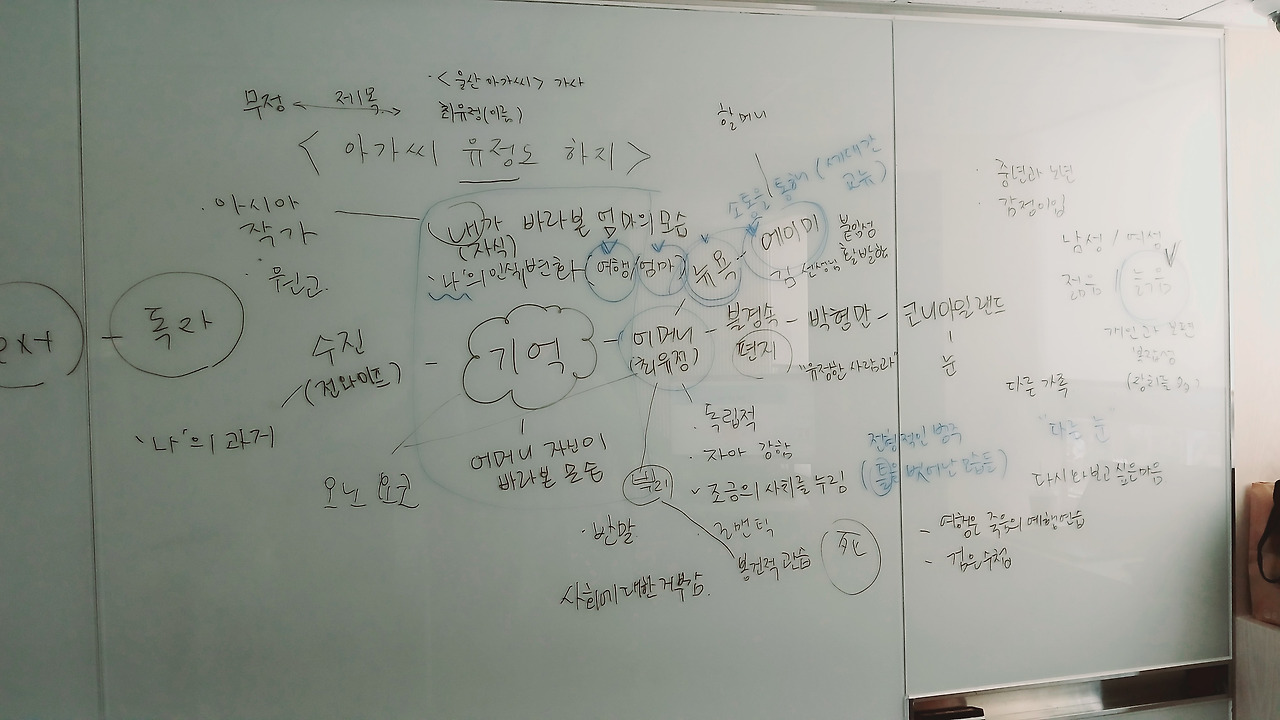 · <울산 아가씨> 가사
무정 ←제목→ 최유정(이름)
<아가씨 유정도 하지>
할머니
· 아시아
작가
· 원고
독자
내가 바라본 엄마의 모습
(자식)
'나'의 인식변화 (여행/엄마) 뉴욕 - 에이미
소통을 통해 (세대간
교류)
붙임성
김 선생님 활발함
수진
(전와이프)
- 기억 - 어머니
(최유정)
- 불경속 - 박형만 - 코니아일랜드
편지
"유정한 사람과"
눈
'나'의 과거
오노 요코
어머니 자신이
바라본 모습
· 독립적
· 자아 강함
· 조금의 사치를 누림
· 로맨틱
봉건적 관습
전형적인 범주
(틀을 벗어난 모습들)
· 반말
사회에 대한 거부감.
死
· 중년과 노년
· 감정이입
남성 / 여성
젊음 / 늙음
개인과 보편
다른 가족
"다른 눈"
다시 나보고 싶은 마음
- 여행은 죽음의 예행연습
- 검은 수첩